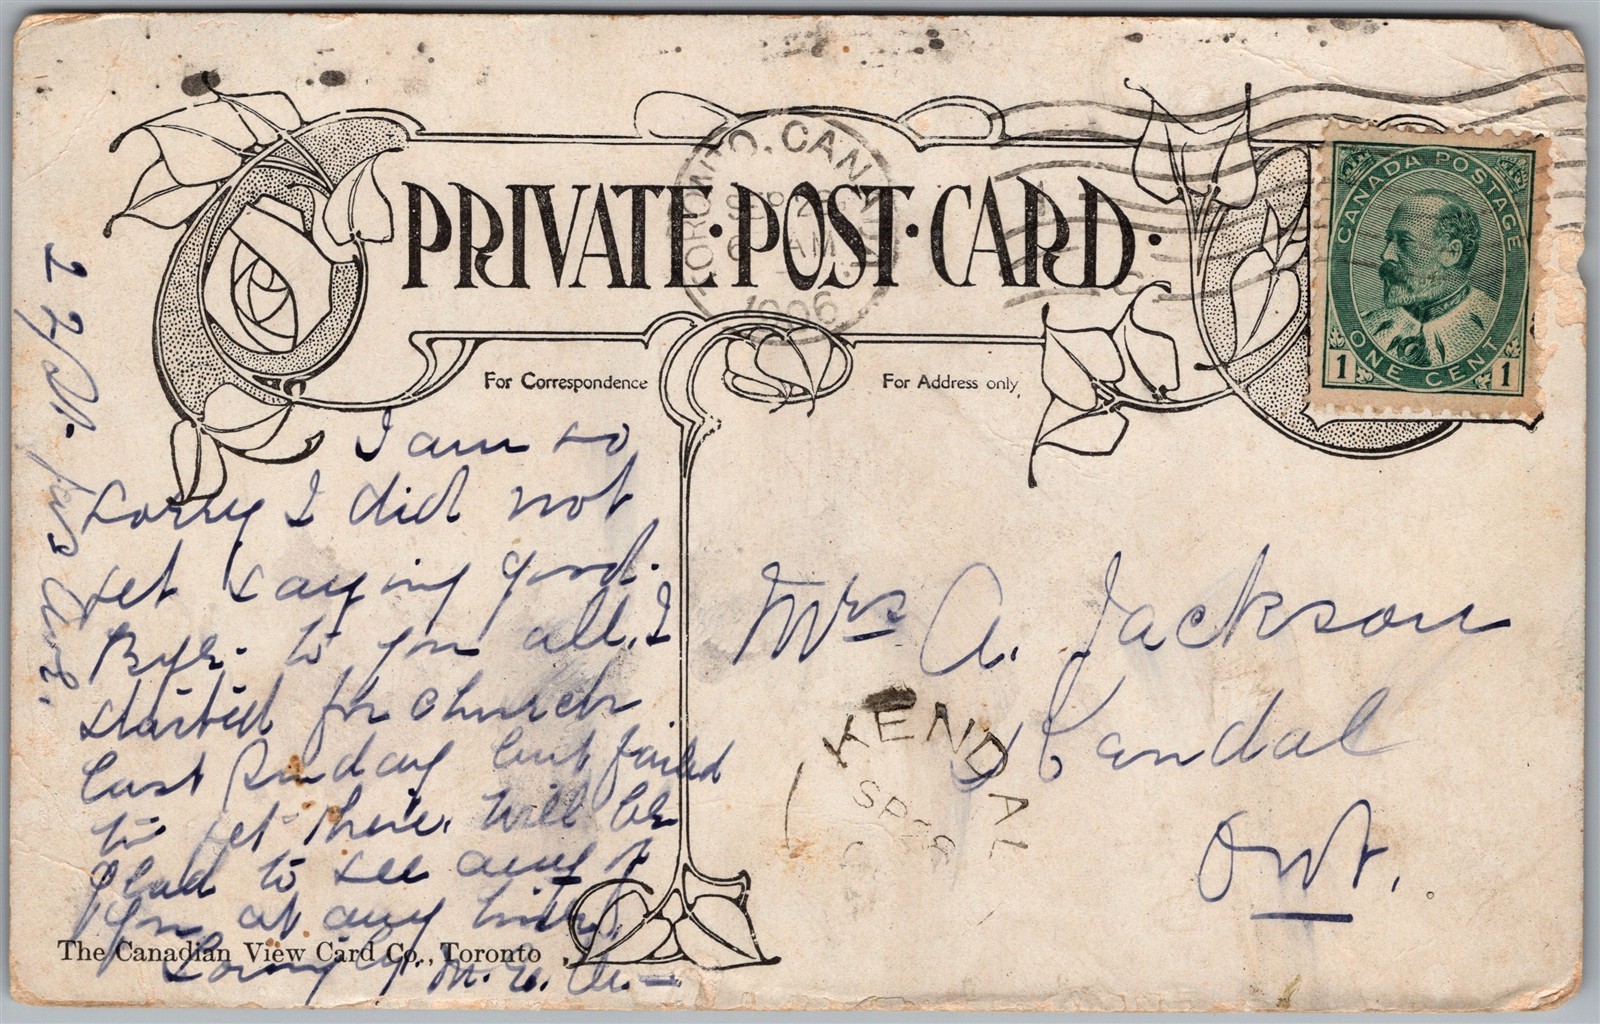 TORONTO. CANADA
SEP 2
AM
1906
PRIVATE · POST · CARD ·
CANADA POSTAGE
ONE CENT
1 1
For Correspondence
For Address only
I am so
sorry I did not
get saying good-
Bye. to you all. I
started for church
last Sunday but failed
to get there. Will be
glad to see any of
you at any time.
Lovingly M.
The Canadian View Card Co., Toronto
27 St.
Ave.
Mrs A. Jackson
Kendal
Ont.
KENDAL
SP 28